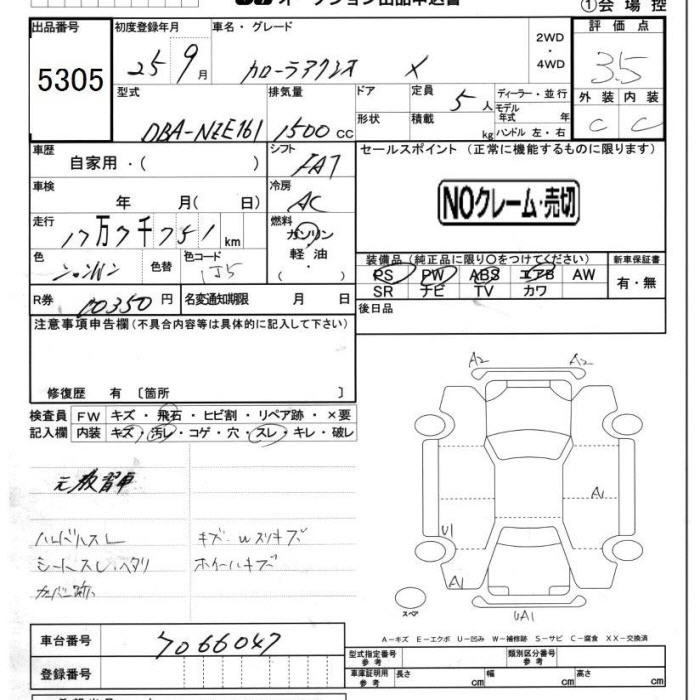 オークション出品申込書
①会場控
出品番号 初度登録年月 車名・グレード 評価点
5305 25 9月 カローラアクシオ X 2WD・4WD 3.5
型式 排気量 ドア 定員 5人 ディーラー・並行 外装 内装
DBA-NZE161 1500cc 形状 積載 kg モデル年式 年 ハンドル 左・右 C C
車歴 シフト セールスポイント (正常に機能するものに限ります)
自家用・( ) FAT
車検 冷房
年 月( 日) AC NOクレーム・売切
走行 燃料
17万7千751km ガソリン・軽油・( )
色 色替 色コード 装備品(純正品に限り○をつけてください) 新車保証書
1J5 PS PW ABS エアB AW 有・無
SR ナビ TV カワ
R券 10350円 名変通知期限 月 日 後日品
注意事項申告欄(不具合内容等は具体的に記入して下さい)
修復歴 有 〔箇所 〕
検査員記入欄 FW キズ・飛石・ヒビ割・リペア跡・×要
内装 キズ・汚レ・コゲ・穴・スレ・キレ・破レ
A2 A2
元教習車
A1
U1
ハンドルスレ キズ・wスリキズ
シートスレ、ヘタリ ホイールキズ
カバー跡
A1
スペア
UA1
A-キズ E-エクボ U-凹み W-補修跡 S-サビ C-腐食 XX-交換済
車台番号 7066047
型式指定番号 参考 類別区分番号 参考
登録番号 車庫証明用 参考 長さ cm 幅 cm 高さ cm